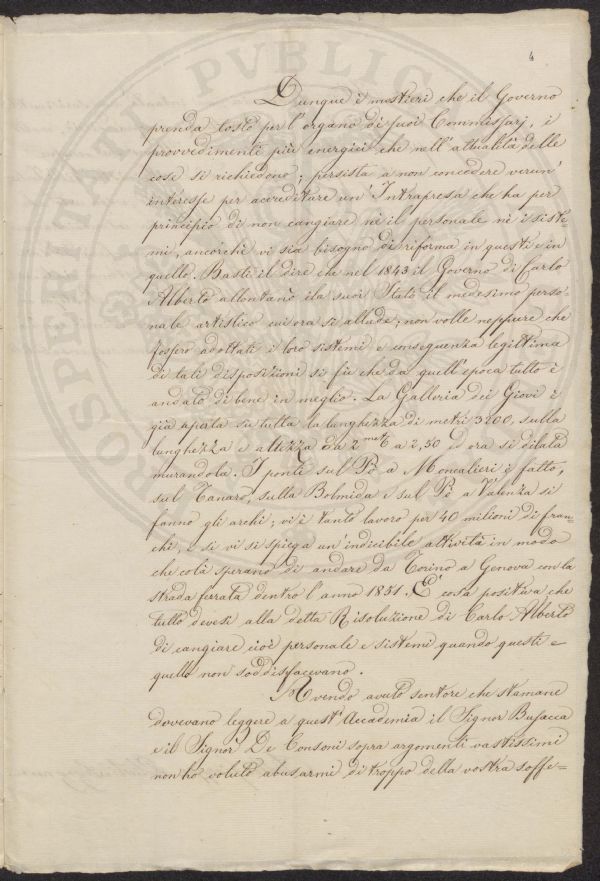 4
Dunque è mestieri che il Governo
prenda tosto per l'organo di suoi Commissarj, i
provvedimenti più energici che nell'attualità delle
cose si richiedono; persista a non concedere verun'
interesse per accreditare un'Intrapresa che ha per
principio di non cangiare nè il personale nè i siste=
mi, ancorchè vi sia bisogno di riforma in questi e in
quello. Basti il dire che nel 1843 il Governo di Carlo
Alberto allontanò da suoi Stati il medesimo perso=
nale artistico cui ora si allude, non volle neppure che
fossero adottati i loro sistemi e conseguenza legittima
di tali disposizioni si fù che da quell'epoca tutto è
andato di bene in meglio. La Galleria dei Giovi è
già aperta su tutta la lunghezza di metri 3200, sulla
larghezza e altezza da 2 met. a 2,50 ed ora si dilata
murandola. I ponti sul Pò a Moncalieri è fatto,
sul Tanaro, sulla Bolmida e sul Pò a Valenza si
fanno gli archi; vi è tanto lavoro per 40 milioni di fran=
chi, e si vi si spiega un'indicibile attività in modo
che colà sperano di andare da Torino a Genova con la
strada ferrata dentro l'anno 1851. È cosa positiva che
tutto devesi alla detta Risoluzione di Carlo Alberto
di cangiare cioè personale e sistemi quando questi e
quello non soddisfacevano.
Avendo avuto sentore che stamane
dovevano leggere a quest'Accademia il Signor Busacca
e il Signor De Consoni sopra argomenti vastissimi
non ho voluto abusarmi di troppo della vostra soffe=
PROSPERITATI PVBLIC